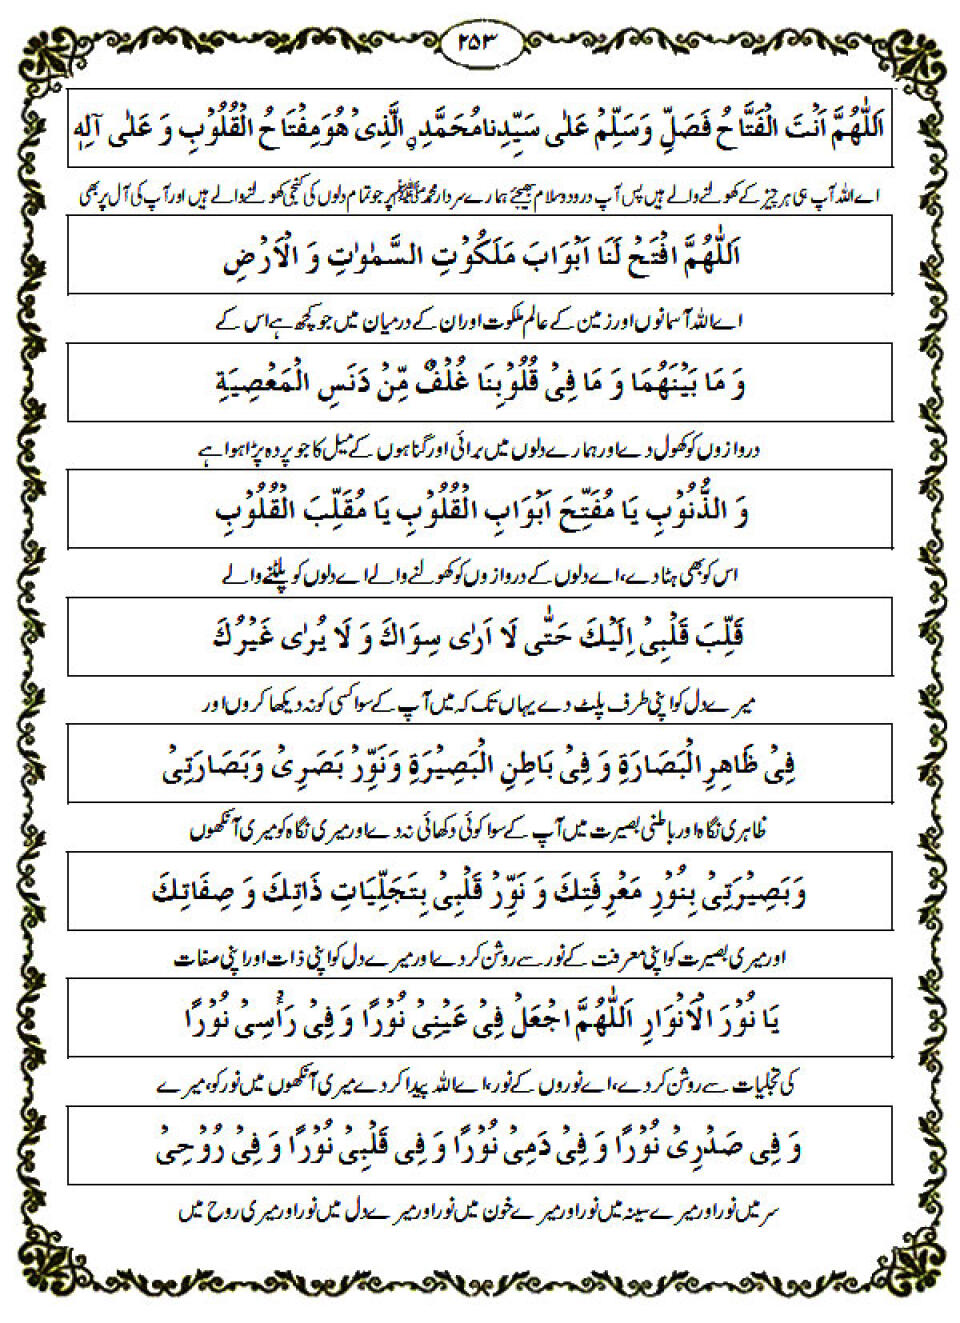 ۲۵۳
اَللّٰهُمَّ اَنْتَ الْفَتَّاحُ فَصَلِّ وَسَلِّمْ عَلٰی سَیِّدِنَا مُحَمَّدِ ۣالَّذِیْ هُوَ مِفْتَاحُ الْقُلُوْبِ وَ عَلٰی آلِهٖ
اے اللہ آپ ہی ہر چیز کے کھولنے والے ہیں پس آپ درود وسلام بھیجئے ہمارے سردار محمد ﷺ پر جو تمام دلوں کی کنجی کھولنے والے ہیں اور آپ کی آل پر بھی
اَللّٰهُمَّ افْتَحْ لَنَا اَبْوَابَ مَلَكُوْتِ السَّمٰوٰتِ وَ الْاَرْضِ
اے اللہ آسمانوں اور زمین کے عالم ملکوت اور ان کے درمیان میں جو کچھ ہے اس کے
وَ مَا بَیْنَهُمَا وَ مَا فِیْ قُلُوْبِنَا غُلْفٌ مِّنْ دَنَسِ الْمَعْصِیَةِ
دروازوں کو کھول دے اور ہمارے دلوں میں برائی اور گناہوں کے میل کا جو پردہ پڑا ہوا ہے
وَ الذُّنُوْبِ یَا مُفَتِّحَ اَبْوَابِ الْقُلُوْبِ یَا مُقَلِّبَ الْقُلُوْبِ
اس کو بھی ہٹا دے، اے دلوں کے دروازوں کو کھولنے والے اے دلوں کو پلٹنے والے
قَلِّبَ قَلْبِیْ اِلَیْكَ حَتّٰی لَا اَرٰی سِوَاكَ وَ لَا یُرٰی غَیْرُكَ
میرے دل کو اپنی طرف پلٹ دے یہاں تک کہ میں آپ کے سوا کسی کو نہ دیکھا کروں اور
فِیْ ظَاهِرِ الْبَصَارَةِ وَ فِیْ بَاطِنِ الْبَصِیْرَةِ وَنَوِّرْ بَصَرِیْ وَبَصَارَتِیْ
ظاہری نگاہ اور باطنی بصیرت میں آپ کے سوا کوئی دکھائی نہ دے اور میری نگاہ کو میری آنکھوں
وَبَصِیْرَتِیْ بِنُوْرِ مَعْرِفَتِكَ وَ نَوِّرْ قَلْبِیْ بِتَجَلِّیَاتِ ذَاتِكَ وَ صِفَاتِكَ
اور میری بصیرت کو اپنی معرفت کے نور سے روشن کر دے اور میرے دل کو اپنی ذات اور اپنی صفات
یَا نُوْرَ الْاَنْوَارِ اَللّٰهُمَّ اجْعَلْ فِیْ عَیْنِیْ نُوْرًا وَ فِیْ رَأْسِیْ نُوْرًا
کی تجلیات سے روشن کر دے، اے نوروں کے نور، اے اللہ پیدا کر دے میری آنکھوں میں نور کو، میرے
وَ فِی صَدْرِیْ نُوْرًا وَ فِیْ دَمِیْ نُوْرًا وَ فِی قَلْبِیْ نُوْرًا وَ فِیْ رُوْحِیْ
سر میں نور اور میرے سینہ میں نور اور میرے خون میں نور اور میرے دل میں نور اور میری روح میں